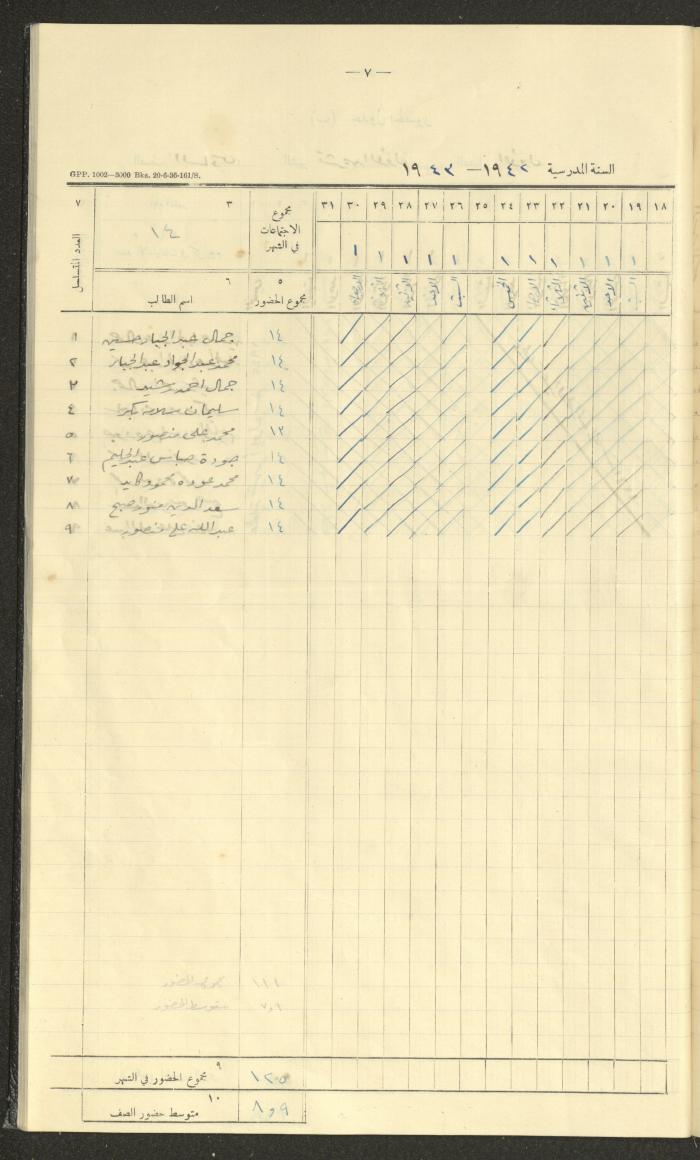 — ٧ —
السنة المدرسية ١٩٤٢ — ١٩٤٣
GPP. 1002—3000 Bks. 20-6-36-161/S.
١٨ ١٩ ٢٠ ٢١ ٢٢ ٢٣ ٢٤ ٢٥ ٢٦ ٢٧ ٢٨ ٢٩ ٣٠ ٣١ مجموع الاجتماعات في الشهر ٣ ٧
١ ١ ١ ١ ١ ١ ١ ١ ١ ١ ١ ١٤ العدد المتسلسل
السبت الاحد الاثنين الثلاثاء الاربعاء الخميس السبت الاحد الاثنين الثلاثاء الاربعاء
٥ مجموع الحضور ٦ اسم الطالب
١٤ جمال عبد الجبار حسين ١
١٤ محمد عبد الجواد عبد الجبار ٢
١٤ جمال احمد رشيد ٣
١٤ سليمان سلامة ٤
١٣ محمد علي منصور ٥
١٤ جودة عباس عبد الحليم ٦
١٤ محمد عودة ٧
١٤ سعد الدين ٨
١٤ عبد الله علي منصور ٩
١١١ مجموع الحضور
٧،٩ متوسط الحضور
١٢٥ ٩ مجموع الحضور في الشهر
٨،٩ ١٠ متوسط حضور الصف